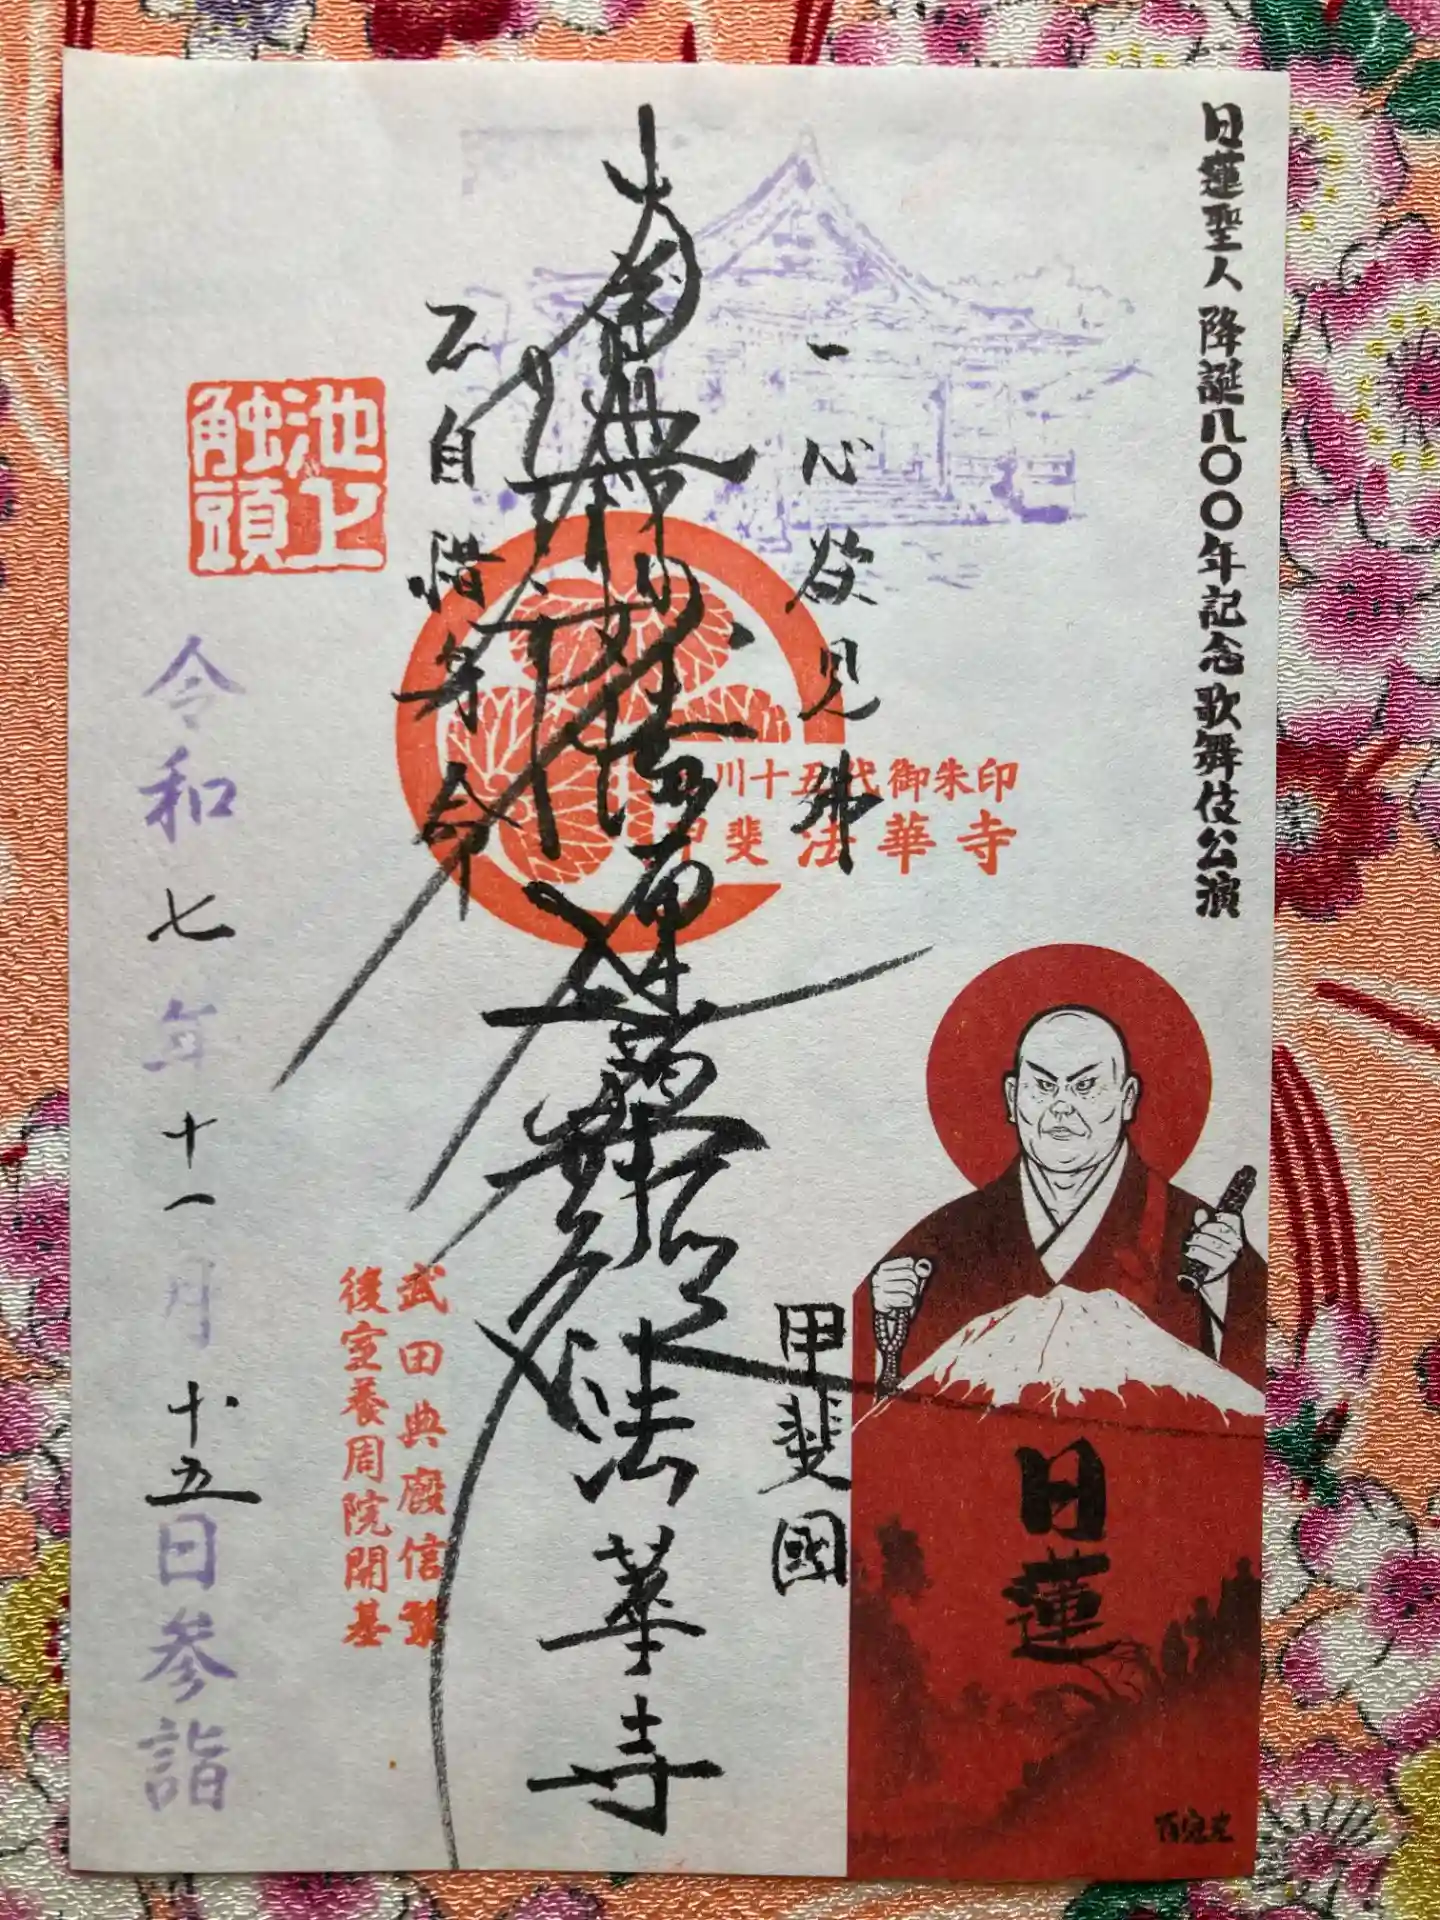 日蓮聖人降誕八〇〇年記念歌舞伎公演
一心欲見佛
甲斐國
日蓮
川十五代御朱印
甲斐法華寺
南無妙法蓮華経
法華寺
不自惜身命
池上
触頭
武田典廐信繁
後室養周院開基
令和七年十一月十五日参詣